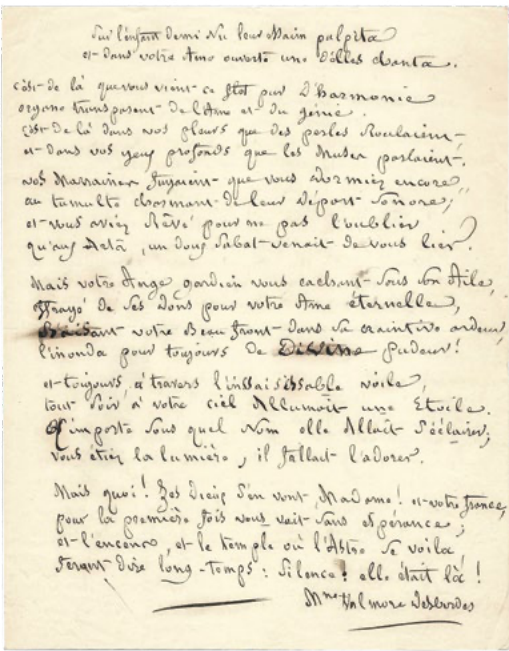 Sur l'enfant demi Nu leur Main palpita
et dans votre Ame ouverte une D'elles chanta.
C'est de là que vous vient ce flot pur D'harmonie
organe transparent de l'Ame et du génie.
C'est de là dans vos pleurs que des perles Roulaient
et dans vos yeux profonds que les Muses parlaient.
Nos Marraines fuyaient que vous dormiez encore,
au tumulte charmant de leur Départ Sonore;
et vous aviez Rêvé pour ne pas l'oublier
qu'aux Arts, un doux Sabat venait de vous lier?
Mais votre Ange gardien vous cachant Sous Son Aile,
Effrayé de ses Dons pour votre Ame éternelle,
Baisant votre Beau front dans sa craintive ardeur,
l'inonda pour toujours de Divine pudeur!
et toujours, à travers l'insaisissable voile,
tout Soir à votre ciel Allumoit une Etoile.
Qu'importe Sous quel Nom elle Allait S'éclairer;
vous étiez la lumière, il fallait l'adorer.
Mais quoi! Les Dieux S'en vont, Madame! et votre france,
pour la première fois vous voit Sans espérance;
et l'encens, et le temple où l'Astre Se voila,
feront Dire long-temps: Silence! elle était là!
Mme Valmore Desbordes